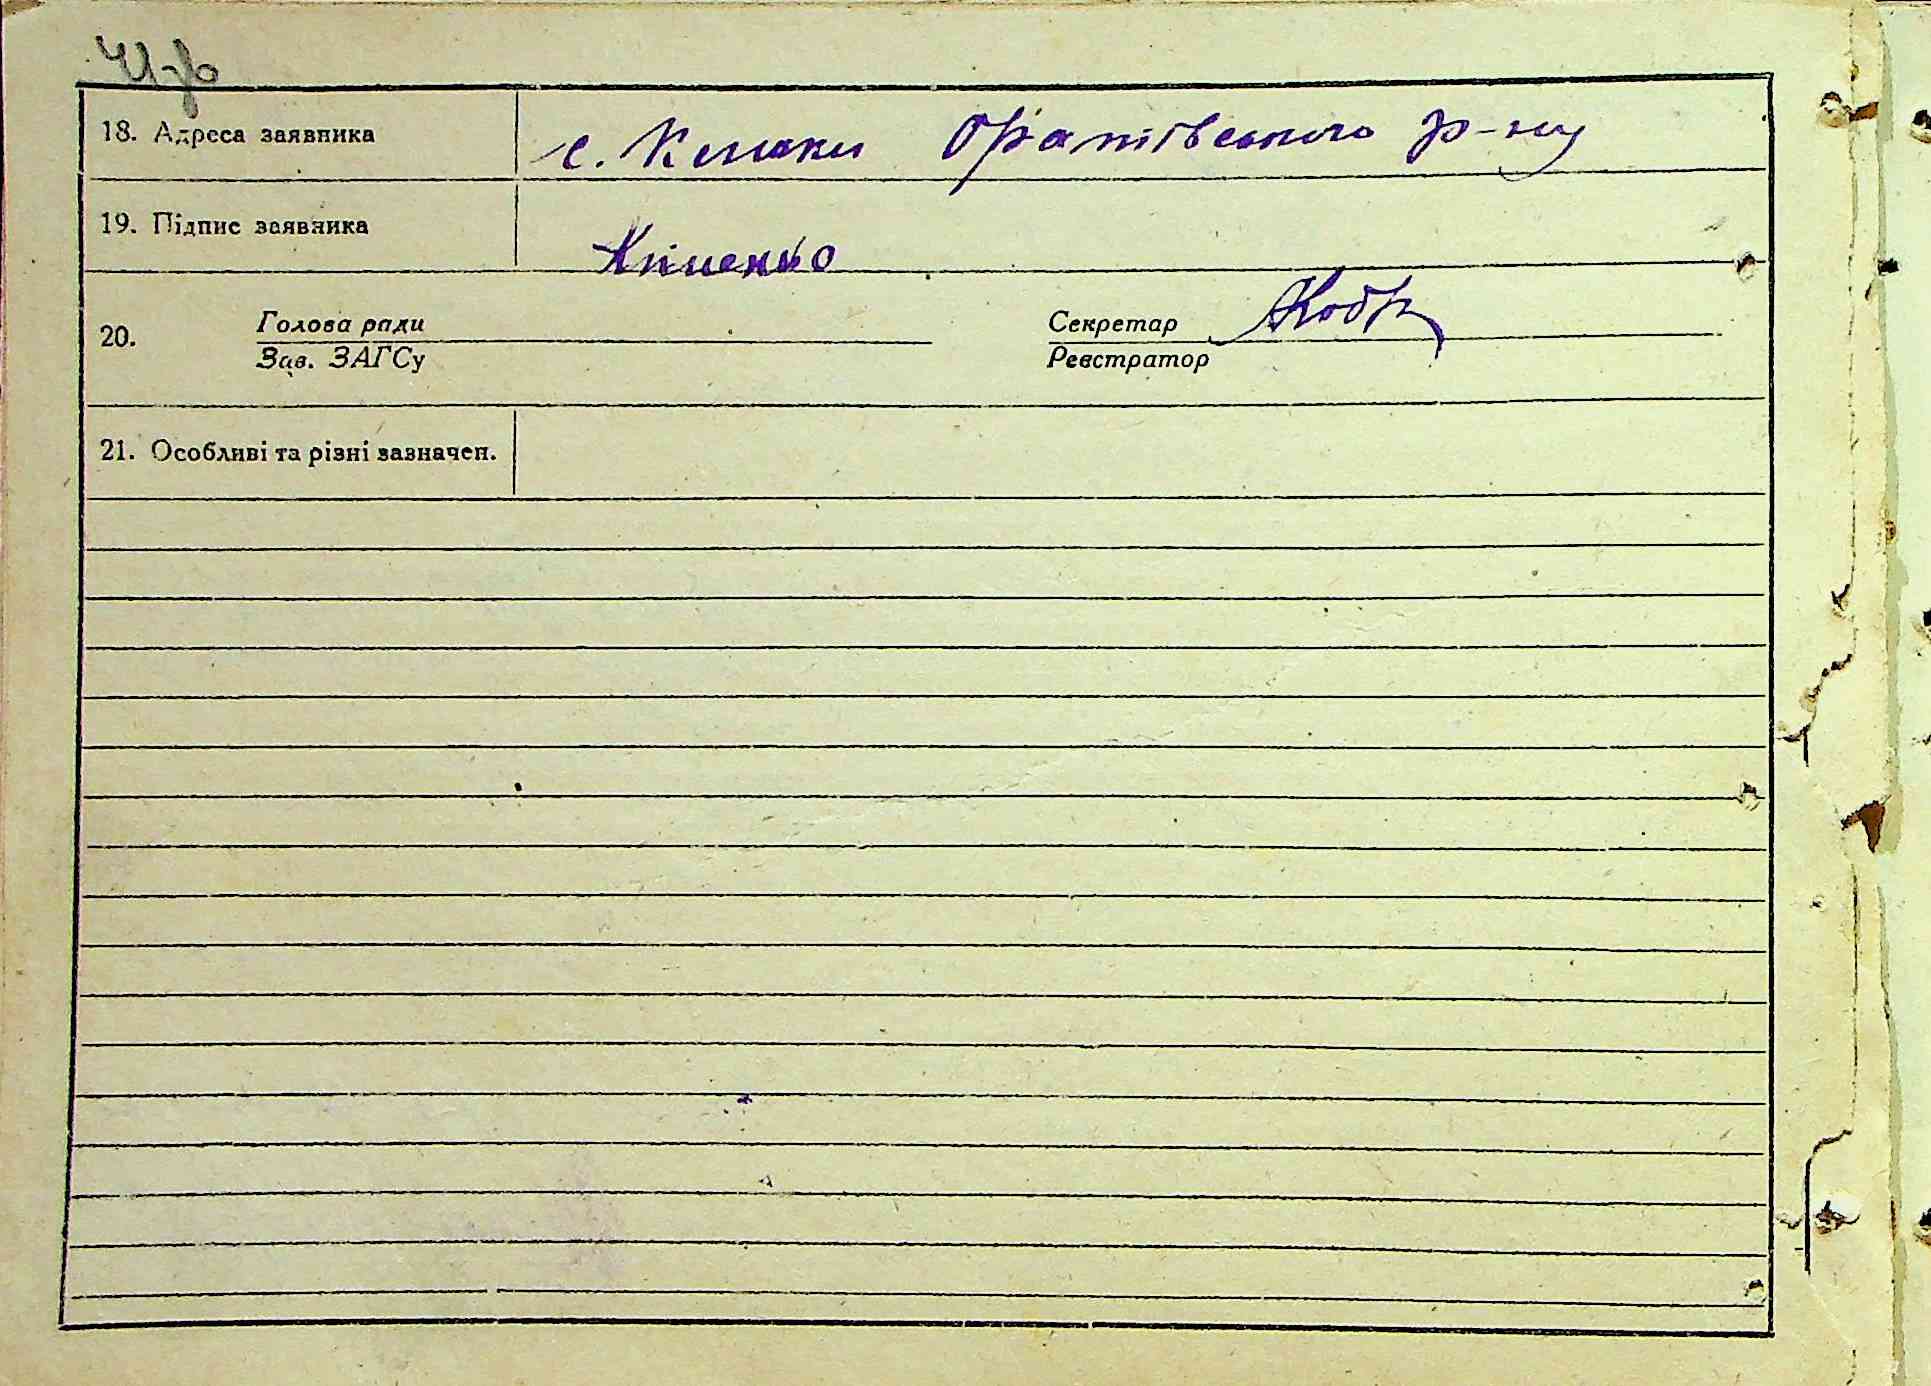 18. Адреса заявника с. Кошаки Оратівського р-ну
19. Підпис заявника
20. Голова ради Секретар
Зав. ЗАГСу Реєстратор
21. Особливі та різні зазначен.